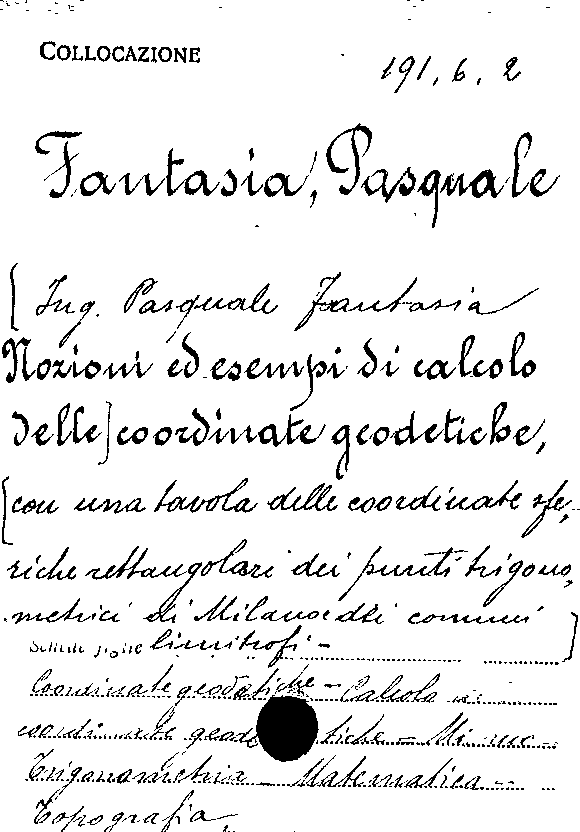 COLLOCAZIONE
191. 6. 2
Fantasia, Pasquale
[Ing. Pasquale Fantasia
Nozioni ed esempi di calcolo
delle] coordinate geodetiche,
[con una tavola delle coordinate sfe-
riche rettangolari dei punti trigono-
metrici di Milano e dei comuni
limitrofi -]
Coordinate geodetiche - Calcolo
coordinate geodetiche -
Trigonometria - Matematica -
Topografia